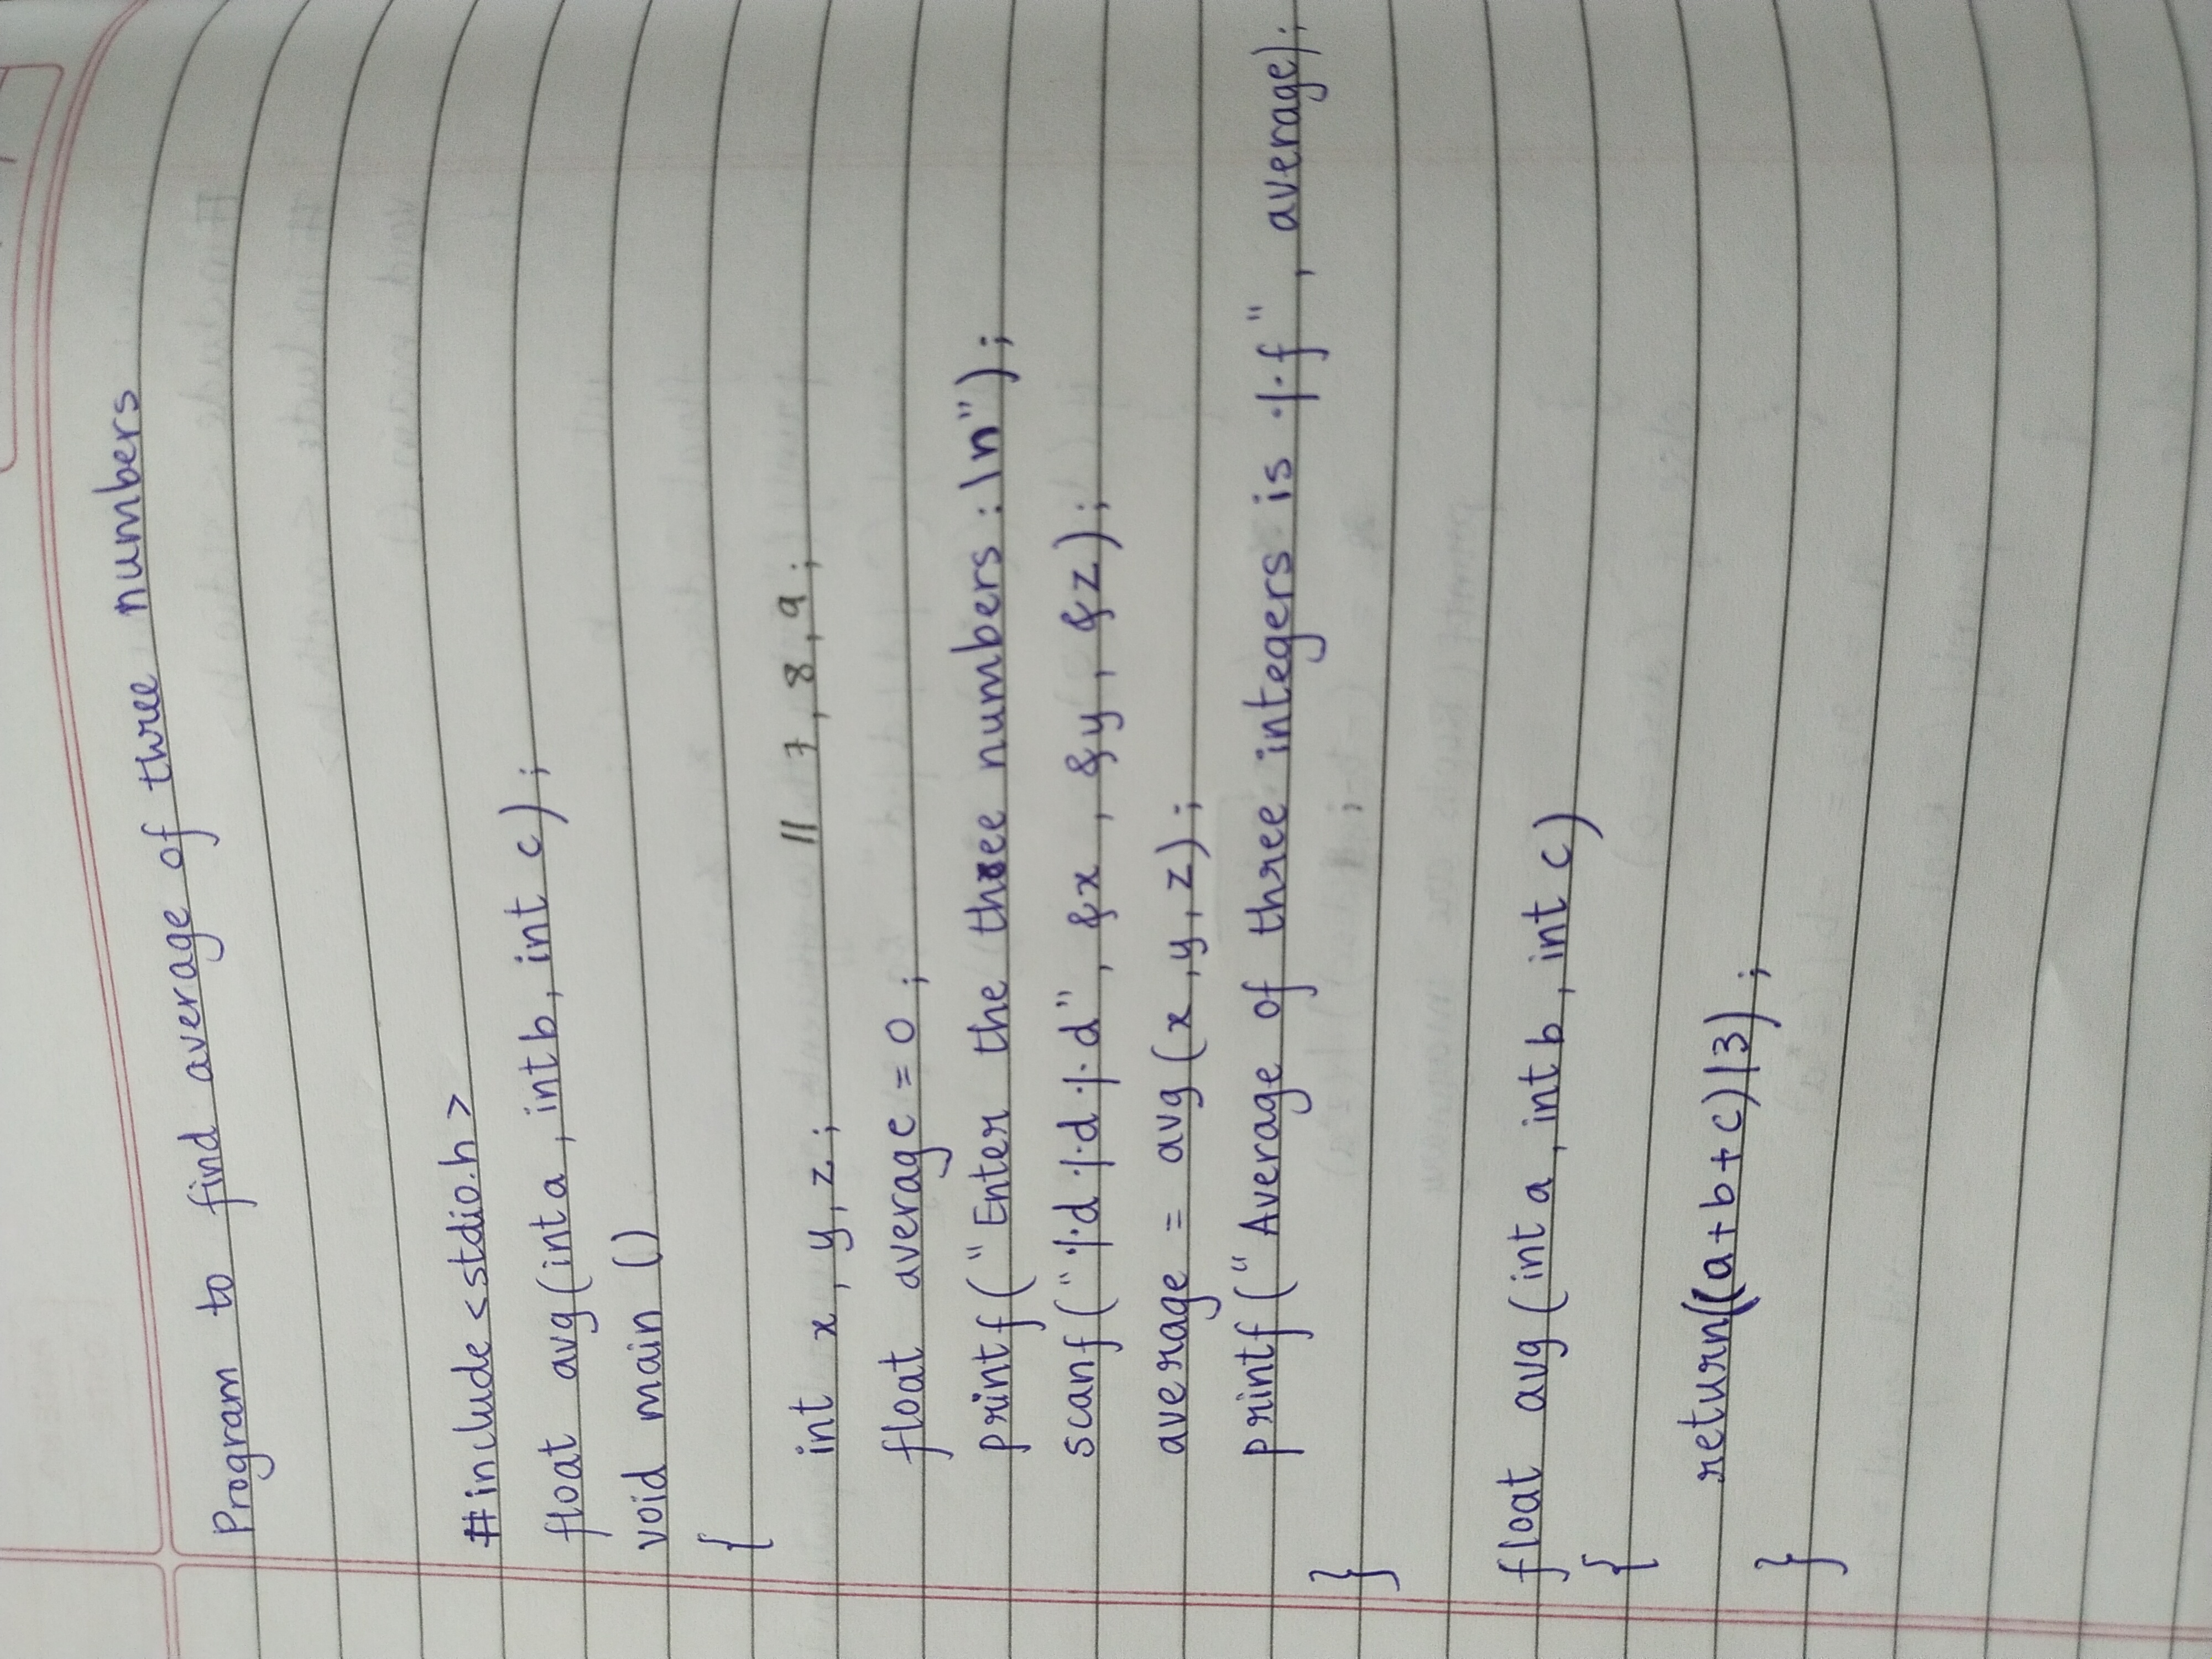 Program to find average of three numbers
#include <stdio.h>
float avg(int a, int b, int c);
void main ()
{
int x, y, z; // 7, 8, 9;
float average = 0;
printf("Enter the three numbers :\n");
scanf("%d %d %d", &x, &y, &z);
average = avg (x, y, z);
printf("Average of three integers is %f", average);
}
float avg (int a, int b, int c)
{
return((a+b+c)/3);
}